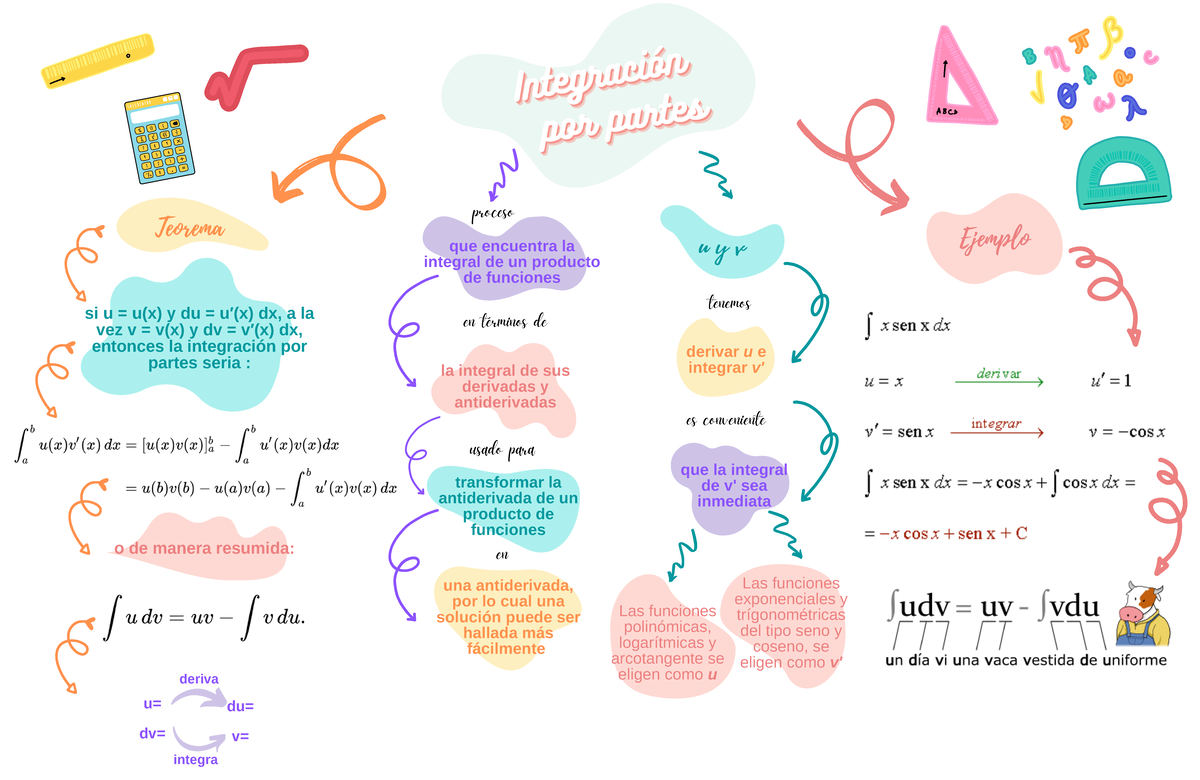 Integración
por partes
Teorema
si u = u(x) y du = u'(x) dx, a la
vez v = v(x) y dv = v'(x) dx,
entonces la integración por
partes seria :
∫_a^b u(x)v'(x) dx = [u(x)v(x)]_a^b − ∫_a^b u'(x)v(x)dx
= u(b)v(b) − u(a)v(a) − ∫_a^b u'(x)v(x) dx
o de manera resumida:
∫ u dv = uv − ∫ v du.
deriva
u= du=
dv= v=
integra
proceso
que encuentra la
integral de un producto
de funciones
en términos de
la integral de sus
derivadas y
antiderivadas
usado para
transformar la
antiderivada de un
producto de
funciones
en
una antiderivada,
por lo cual una
solución puede ser
hallada más
fácilmente
u y v
tenemos
derivar u e
integrar v'
es conveniente
que la integral
de v' sea
inmediata
Las funciones
polinómicas,
logarítmicas y
arcotangente se
eligen como u
Las funciones
exponenciales y
trígonométricas
del tipo seno y
coseno, se
eligen como v'
ABCD
Ejemplo
∫ x sen x dx
u = x derivar u' = 1
v' = sen x integrar v = −cos x
∫ x sen x dx = −x cos x + ∫ cos x dx =
= −x cos x + sen x + C
∫udv = uv - ∫vdu
un día vi una vaca vestida de uniforme